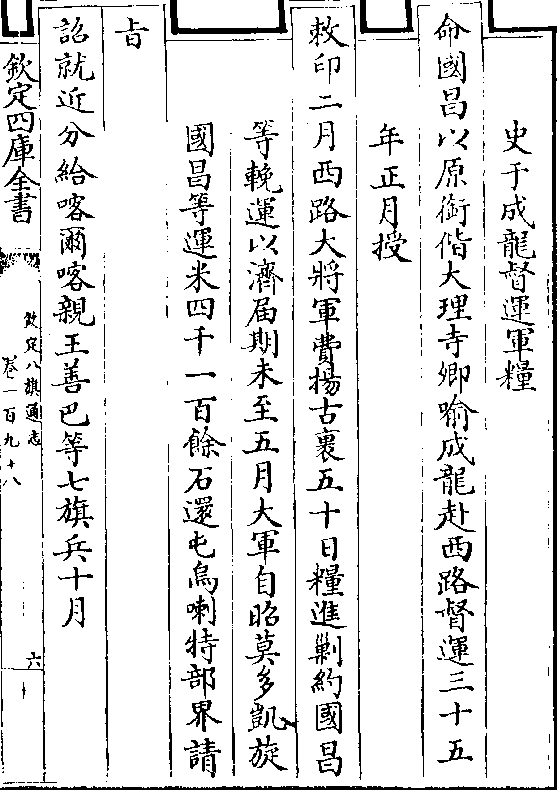 史于成龍督運軍糧
命國昌以原銜偕大理寺卿喻成龍赴西路督運三十五
年正月授
敕印二月西路大將軍費揚古裹五十日糧進剿約國昌
等輓運以濟屆期未至五月大軍自昭莫多凱旋
國昌等運米四千一百餘石還屯烏喇特部界請
旨
詔就近分給喀爾喀親王善巴等七旗兵十月
欽定四庫全書
欽定八旗通志
卷一百九十八
六